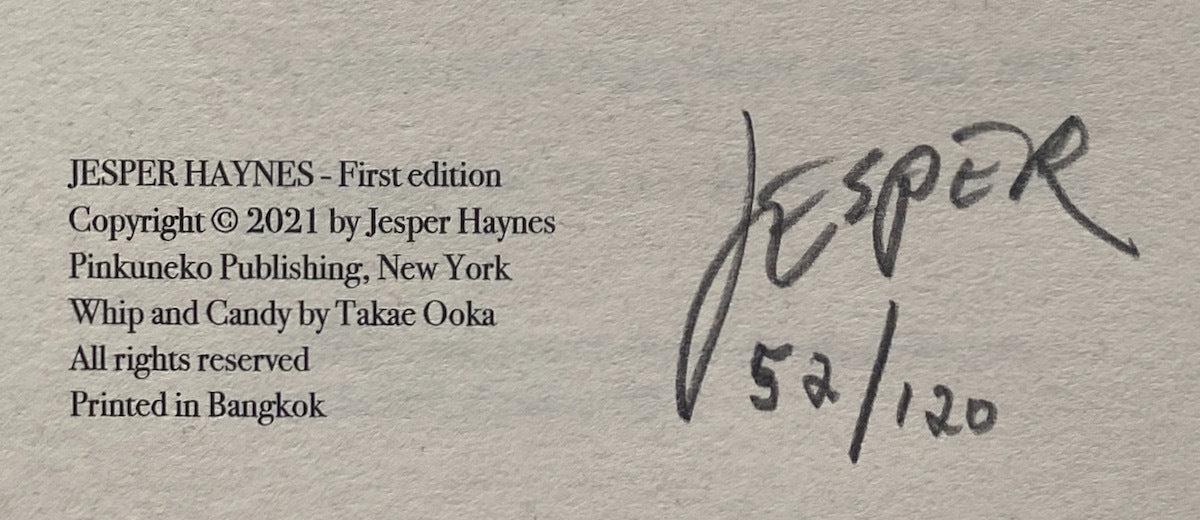 JESPER HAYNES - First edition
Copyright © 2021 by Jesper Haynes
Pinkuneko Publishing, New York
Whip and Candy by Takae Ooka
All rights reserved
Printed in Bangkok
JESPER
52/120